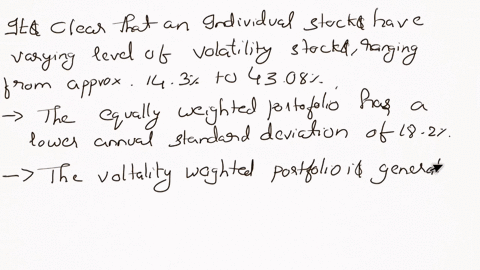 It's clear that an Individual stocks have
varying level of volatility stocks, ranging
from approx. 14.3% to 43.08%.
→ The equally weighted portofolio has a
lower annual standard deviation of 18.2%.
→ The voltality weghted portfolio is generat